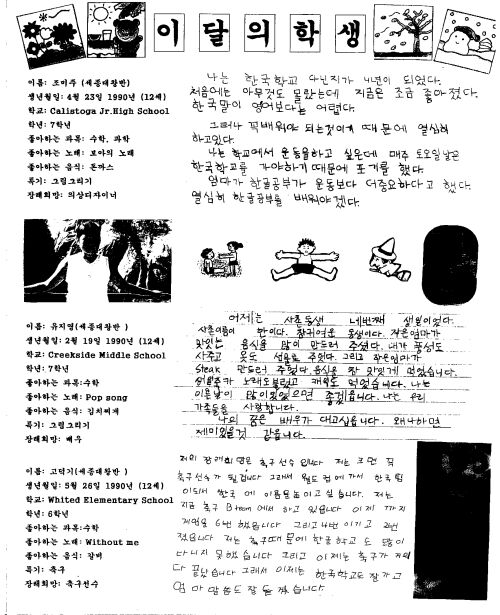 이달의학생
이름: 조미주 (세종대왕반)
생년월일: 4월 23일 1990년 (12세)
학교: Calistoga Jr.High School
학년: 7학년
좋아하는 과목: 수학, 과학
좋아하는 노래: 보아의 노래
좋아하는 음식: 돈까스
특기: 그림그리기
장래희망: 의상디자이너
나는 한국학교 다닌지가 4년이 되었다.
처음에는 아무것도 몰랐는데 지금은 조금 좋아졌다.
한국말이 영어보다는 어렵다.
그러나 꼭배워야 되는것이기 때문에 열심히
하고있다.
나는 학교에서 운동을하고 싶은데 매주 토요일날은
한국학교를 가야하기때문에 포기를 했다.
엄마가 한글공부가 운동보다 더중요하다고 했다.
열심히 한글공부를 배워야겠다.
이름: 유지영(세종대왕반)
생년월일: 2월 19일 1990년 (12세)
학교: Creekside Middle School
학년: 7학년
좋아하는 과목:수학
좋아하는 노래: Pop song
좋아하는 음식: 김치찌개
특기: 그림그리기
장래희망: 배우
어제는 사촌동생 네번째 생일이었다.
사촌이름이 동생이다. 작은엄마가
맛있는 음식을 많이 만드러 주셨다. 내가 풍선도
사주고 옷도 선물로 주었다. 그리고 작은엄마가
Steak 만드러 주셨다. 음식을 참 맛있게 먹었습니다.
노래도불렀고 케익도 먹었습니다. 나는
많이있었으면 좋겠습니다. 나는 우리
가족들을 사랑합니다.
나의 꿈은 배우가 대고십습니다. 왜냐하면
제미있을것 같읍니다.
이름: 고덕기(세종대왕반)
생년월일: 5월 26일 1990년 (12세)
학교: Whited Elementary School
학년: 6학년
좋아하는 과목:수학
좋아하는 노래: Without me
좋아하는 음식: 갈비
특기: 축구
장래희망: 축구선수
저의 장래희망은 축구선수 입니다. 저는 크면 꼭
축구선수가 될겁니다 그래서 월드컵에가서 한국팀
이되서 한국에 이름을높이고 싶습니다. 저는
지금 축구 B team에서 하고 있읍니다 이제 까지
게임을 6번 했읍니다 그리고4번 이기고 2번
졌습니다 저는 축구때문에 한글학교 도 많이
다니지 못했습니다 그리고 이제는 축구가 거의
다 끝났습니다 그래서 이제는 한국학교도 잘가고
엄마 말씀도 잘 듣겠습니다